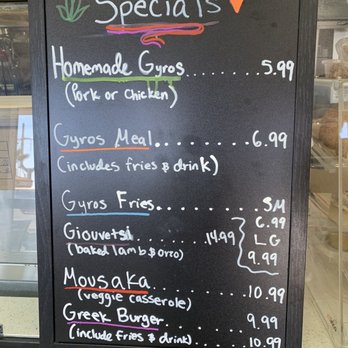 Specials
Homemade Gyros....... 5.99
(Pork or Chicken)
Gyros Meal........ 6.99
(includes fries & drink)
Gyros Fries....... SM
6.99
Giouvetsi........ 14.99 LG
(baked lamb & orzo) 9.99
Mousaka........ 10.99
(veggie casserole)
Greek Burger....... 9.99
(include fries & drink)..... 10.99